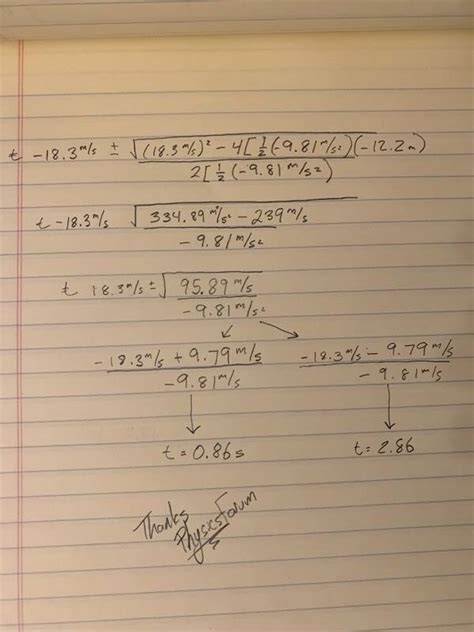 t -18.3 m/s ± √(18.3 m/s)² - 4[½(-9.81 m/s²)(-12.2m)
2[½(-9.81 m/s²)
t -18.3 m/s √334.89 m²/s² - 239 m/s
-9.81 m/s²
t 18.3 m/s ± √95.89 m/s
-9.81 m/s²
-18.3 m/s + 9.79 m/s -18.3 m/s - 9.79 m/s
-9.81 m/s -9.81 m/s
t = 0.86s t = 2.86
Thanks
PhysicsForum